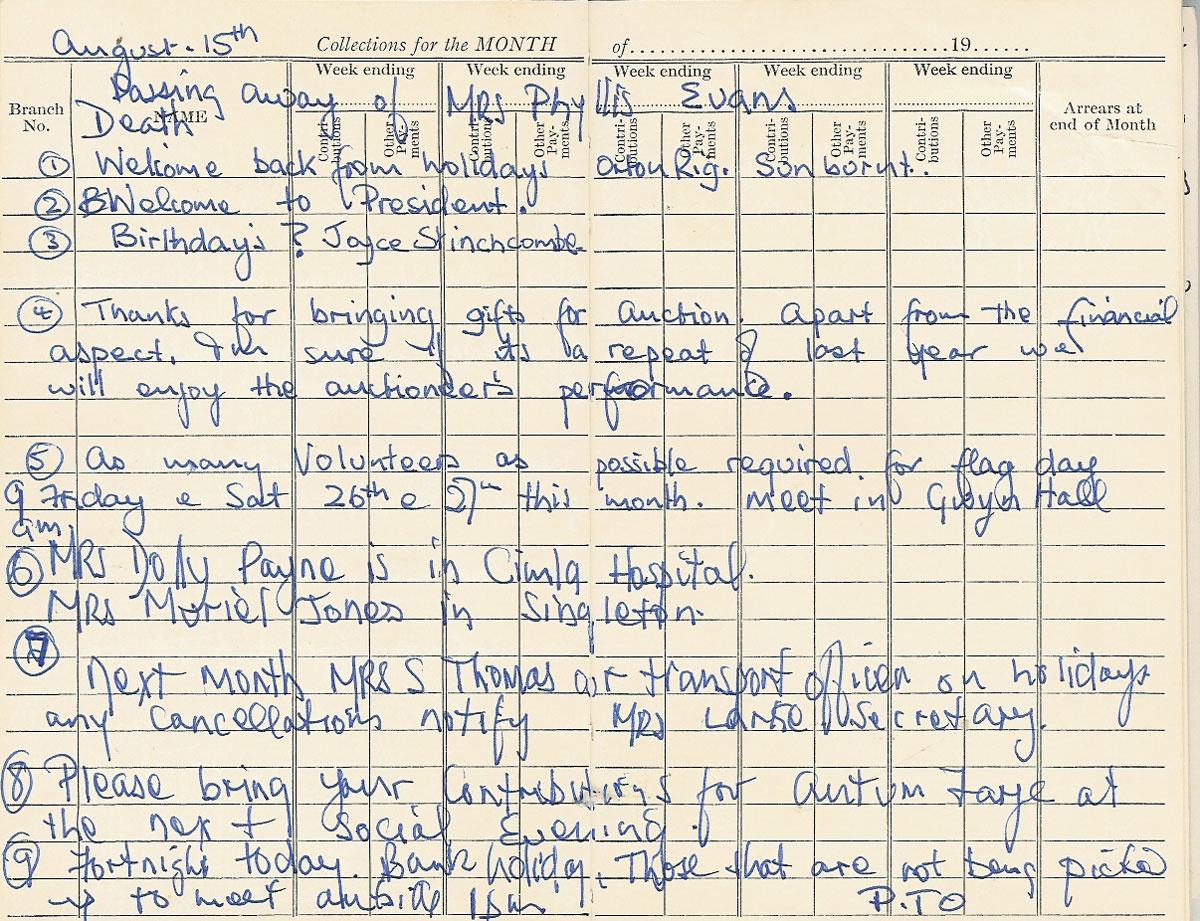 August. 15th Collections for the MONTH of 19
Week ending Week ending Week ending Week ending Week ending
Branch No. NAME Contri-butions Other Pay-ments Contri-butions Other Pay-ments Contri-butions Other Pay-ments Contri-butions Other Pay-ments Contri-butions Other Pay-ments Arrears at end of Month
Passing away of MRS Phyllis Evans
Death
① Welcome back from holidays Sunburnt.
② Welcome to President.
③ Birthday's ? Joyce Stinchcombe
④ Thanks for bringing gifts for auction. Apart from the financial
aspect, I'm sure if its a repeat of last year we
will enjoy the auctioneer's performance.
⑤ As many Volunteers as possible required for flag day
9 Friday e Sat 26th e 27th this month. Meet in Gwyn Hall
am.
⑥ MRS Dolly Payne is in Cimla Hospital.
MRS Muriel Jones in Singleton.
⑦
Next Month MRS S Thomas our transport officer on holidays
any cancellations notify MRS Larke Secretary.
⑧ Please bring your Contributions for Autum Fayre at
the next Social Evening.
⑨ Fortnight today. Bank holiday. Those that are not being picked
up to meet outside 1pm P.T.O